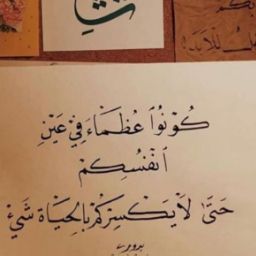 كُوْنُوُا عُظَمَاءَ فِيْ عَيْنِ
أَنْفُسِكُمْ
حَتَّىٰ لَا يَكْسِرَكُمْ بِالحِيَاة شَيْءْ